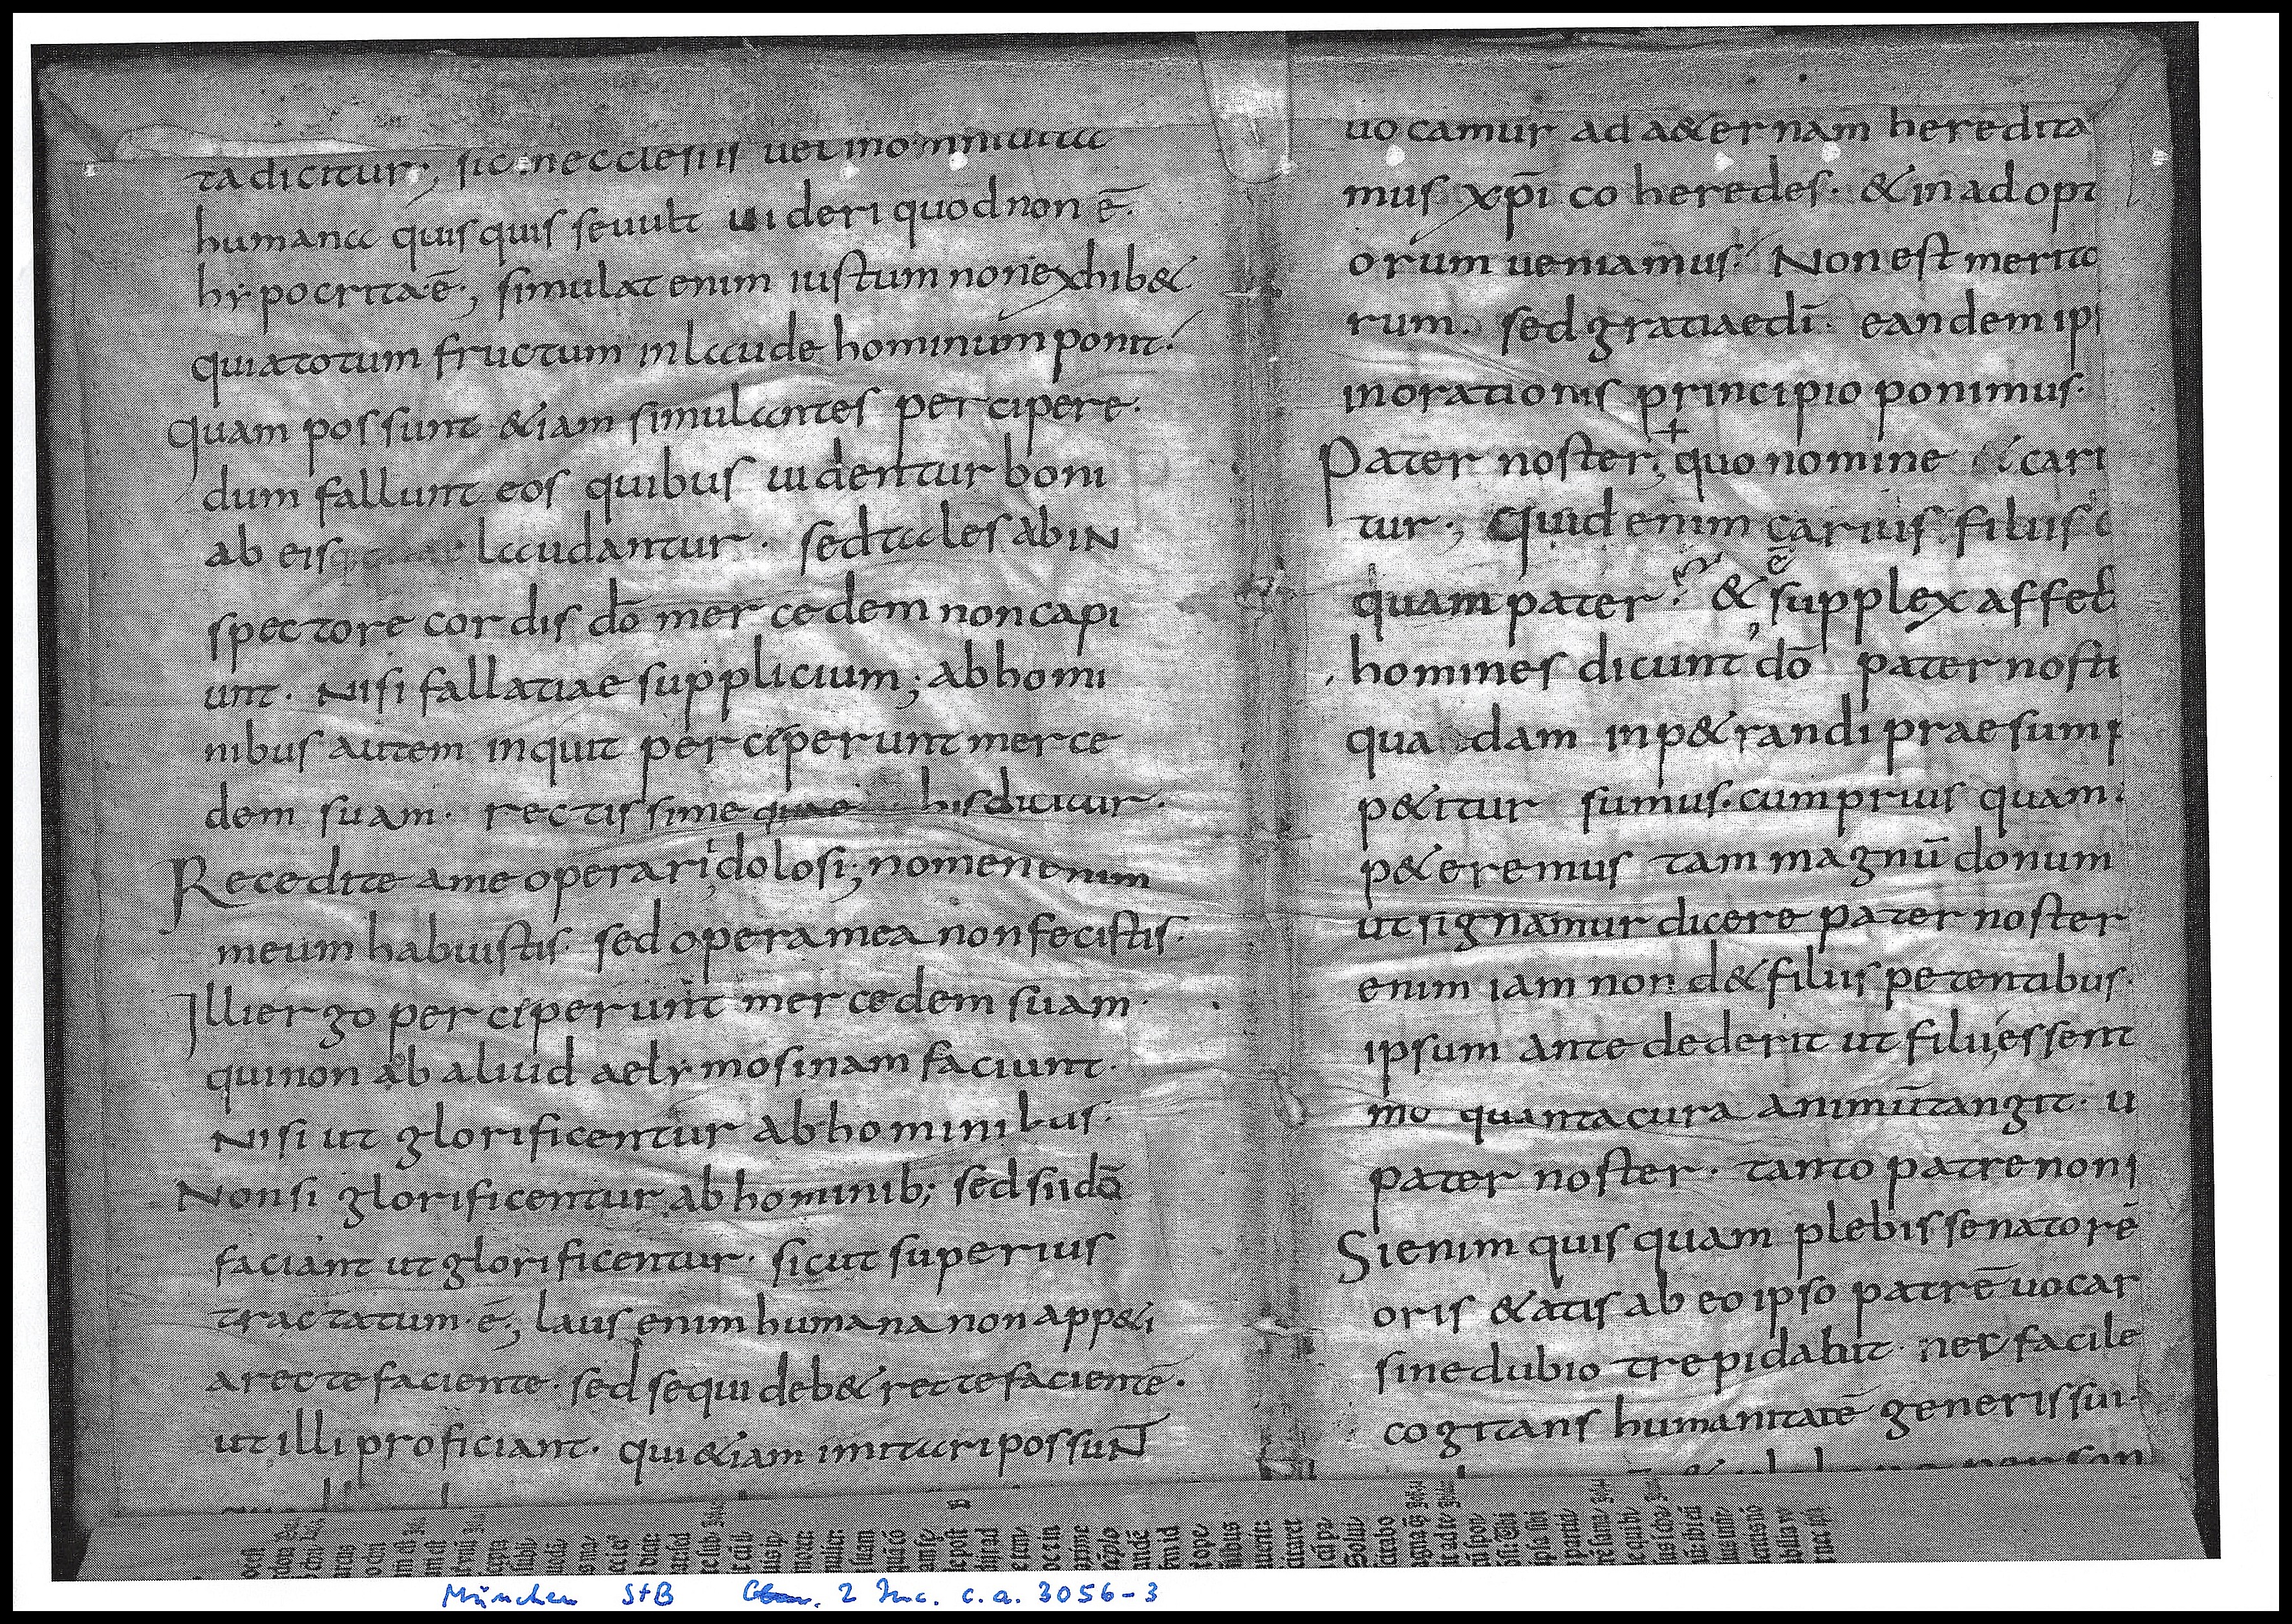 ta dicitur; sic in ecclesiis vel in omni uita
humana quisquis se uult uideri quod non ē.
hypocrita ē; simulat enim iustum non exhib&
quia totum fructum in laude hominum ponit.
Quam possunt &iam simulantes percipere.
dum fallunt eos quibus uidentur boni
ab eis laudantur. sed tales ab in
spectore cordis dō mercedem non capi
unt. Nisi fallatiae supplicium; ab homi
nibus autem inquit perceperunt merce
dem suam. rectissime his dicitur.
Recedite a me operarii dolosi; nomen enim
meum habuistis. sed opera mea non fecistis.
Illi ergo perceperunt mercedem suam.
qui non ab aliud aelymosinam faciunt.
Nisi ut glorificentur ab hominibus.
Non si glorificentur ab hominib; sed si idō
faciant ut glorificentur. sicut superius
tractatum. ē; laus enim humana non app&i
a recte faciente. sed sequi deb& recte facientē.
ut illi proficiant. qui &iam imitari possunt
uocamur ad a&ernam heredita
mus xp̄i coheredes. & in adopt
orum ueniamus. Non est merito
rum. sed gratiae dī. eandem ips
in orationis principio ponimus.
Pater noster; quo nomine & cari
tur; Quid enim carius filiis
ē
quam pater. & supplex affect
homines dicunt dō pater nost
qua dam inp&randi praesump
p&itur sumus. cum prius quam
p&eremus tam magnū donum
ut signamur dicere pater noster
enim iam non d& filiis petentibus.
ipsum ante dederit ut filii essent
mo quanta cura animū tangit. u
pater noster. tanto patre non
Si enim quisquam plebis senatorē
oris &atis ab eo ipso patrē uocar
sine dubio trepidabit. nec facile
cogitans humanitatē generis sui.
München StB 2 Inc. c.a. 3056-3